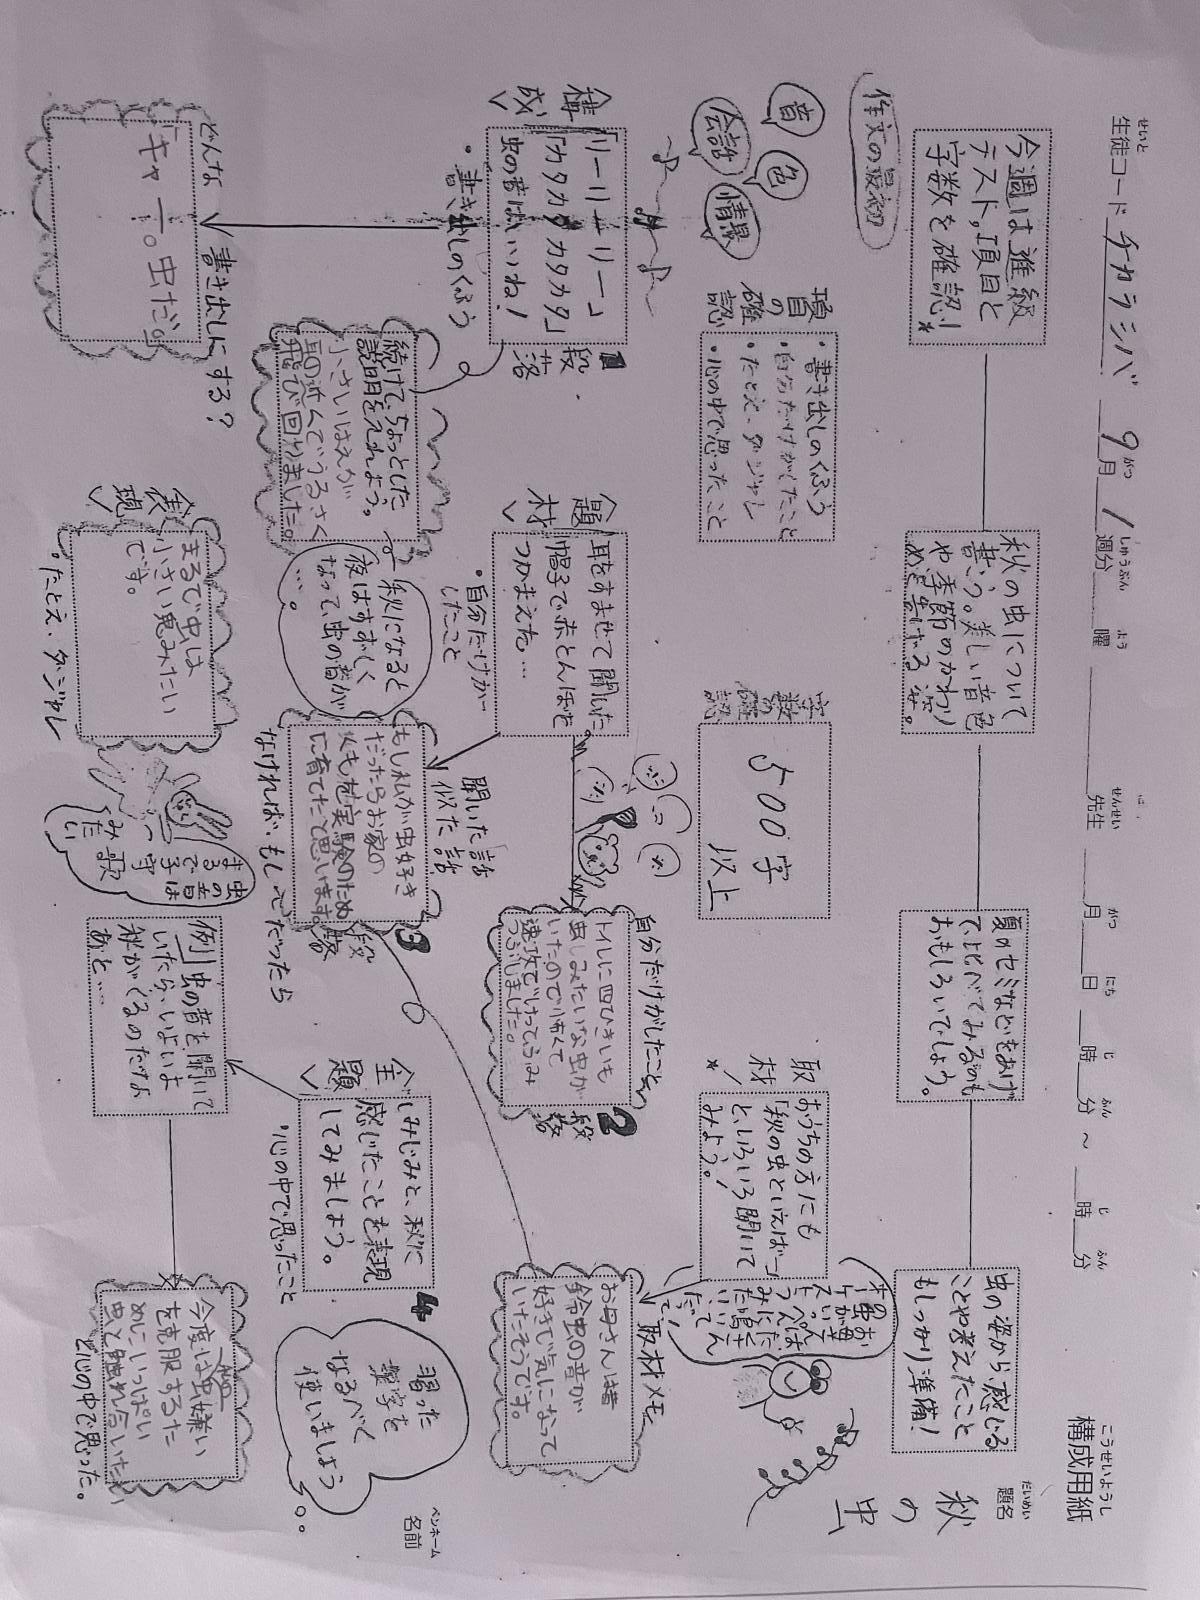 せいと
生徒コード チカラシバ 9月 1週分 曜 先生 月 日 時 分 ～ 時 分
がつ しゅうぶん よう せんせい がつ にち じ ふん じ ふん
こうせいようし
構成用紙
だいめい
題名
秋の虫
ペンネーム
名前
作文の最初
今週は進級
テスト,項目と
字数を確認!
秋の虫について
書こう。美しい音色
や季節のかわり
夏のセミなどをあげ
て、比べてみるのも
おもしろいでしょう。
虫の姿から感じる
ことや考えたこと
もしっかり準備!
音
色
会話
情景
項目の確認
・書き出しのくふう
・自分だけがしたこと
・たとえ、ダジャレ
・心の中で思ったこと
字数の確認
500字
以上
取材
おうちの方にも
「秋の虫といえば…」
といろいろ聞いて
みよう!
構成
「リーリーリーリー」
「カタカタカタカタ」
虫の音はいいね!
・書き出しのくふう
1段落
どんな書き出しにする?
「キャー。虫だ。」
続けて、ちょっとした
説明を入れよう。
小さいはえが
耳の近くでうるさく
飛び回りました。
秋になると
夜はすずしく
なって、虫の音が
…。
題材
耳をすませて聞いた。
帽子で赤とんぼを
つかまえた…
・自分だけが
したこと
自分だけがしたこと
トイレに四ひきいも
虫しみたいな虫が
いたので怖くて
速攻で
つぶしました。
2段落
聞いた話
似た話
もし私が虫好き
だったらお家の
に育てたと思います。
なければ・もし〜だったら
3段落
取材メモ
お母さんは昔
鈴虫の音が
好きで気になって
いたそうです。
表現
まるで虫は
小さい鬼みたい
です。
・たとえ、ダジャレ
虫の音は
まるで子守
歌みたい
主題
しみじみと、秋に
感じたことを表現
してみましょう。
・心の中で思ったこと
4
例 虫の音を聞いて
いたら、いよいよ
秋がくるのだなぁ
と……
今度は虫嫌い
を克服するた
めにいっぱい
虫と触れ合いたい
と心の中で思った。
習った
漢字を
なるべく
使いましょう